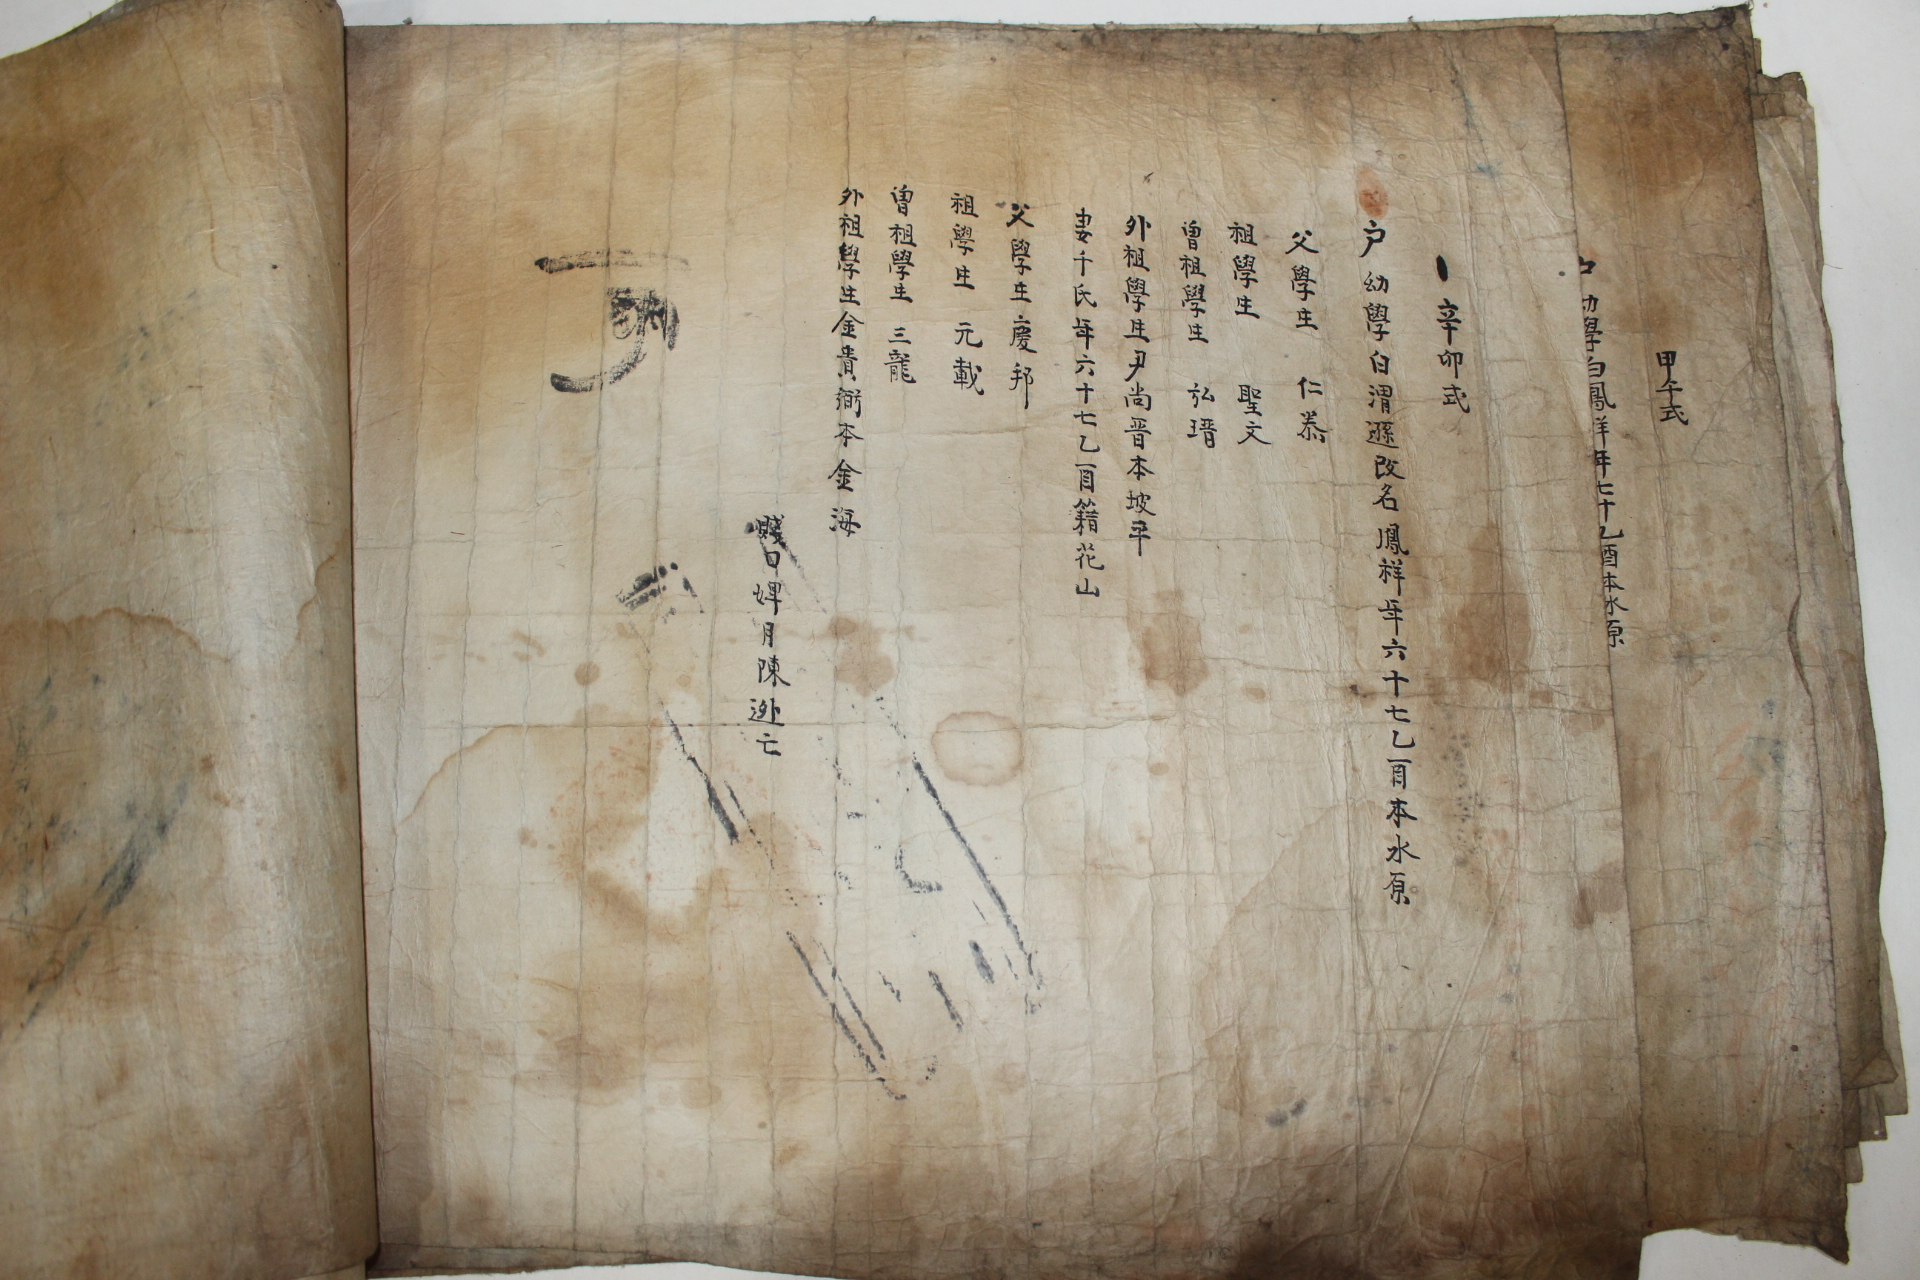 甲午式
幼學白鳳祥年七十乙酉本水原
辛卯式
戶 幼學白渭遜改名鳳祥年六十七乙酉本水原
父學生 仁恭
祖學生 聖文
曾祖學生 弘璶
外祖學生尹尚晋本坡平
妻千氏年六十七乙酉籍花山
父學生慶邦
祖學生 元載
曾祖學生 三龍
外祖學生金貴弼本金海
賤口婢月陳逃亡